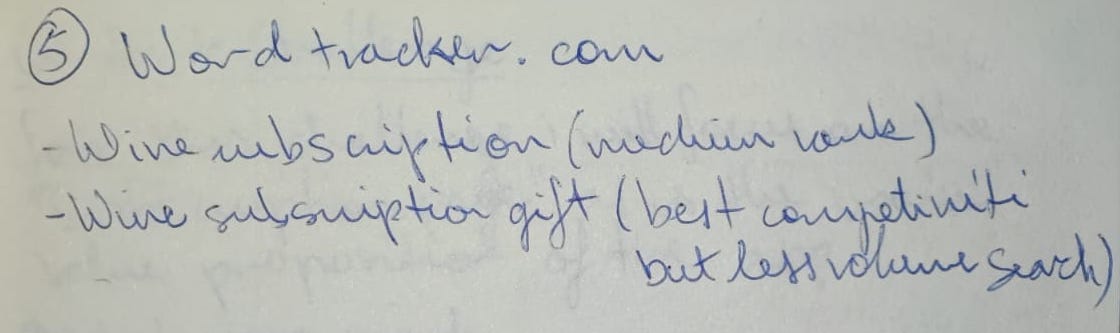 ⑤ Wordtracker.com
- Wine subscription (medium rank)
- Wine subscription gift (best competiviti
but less volume search)